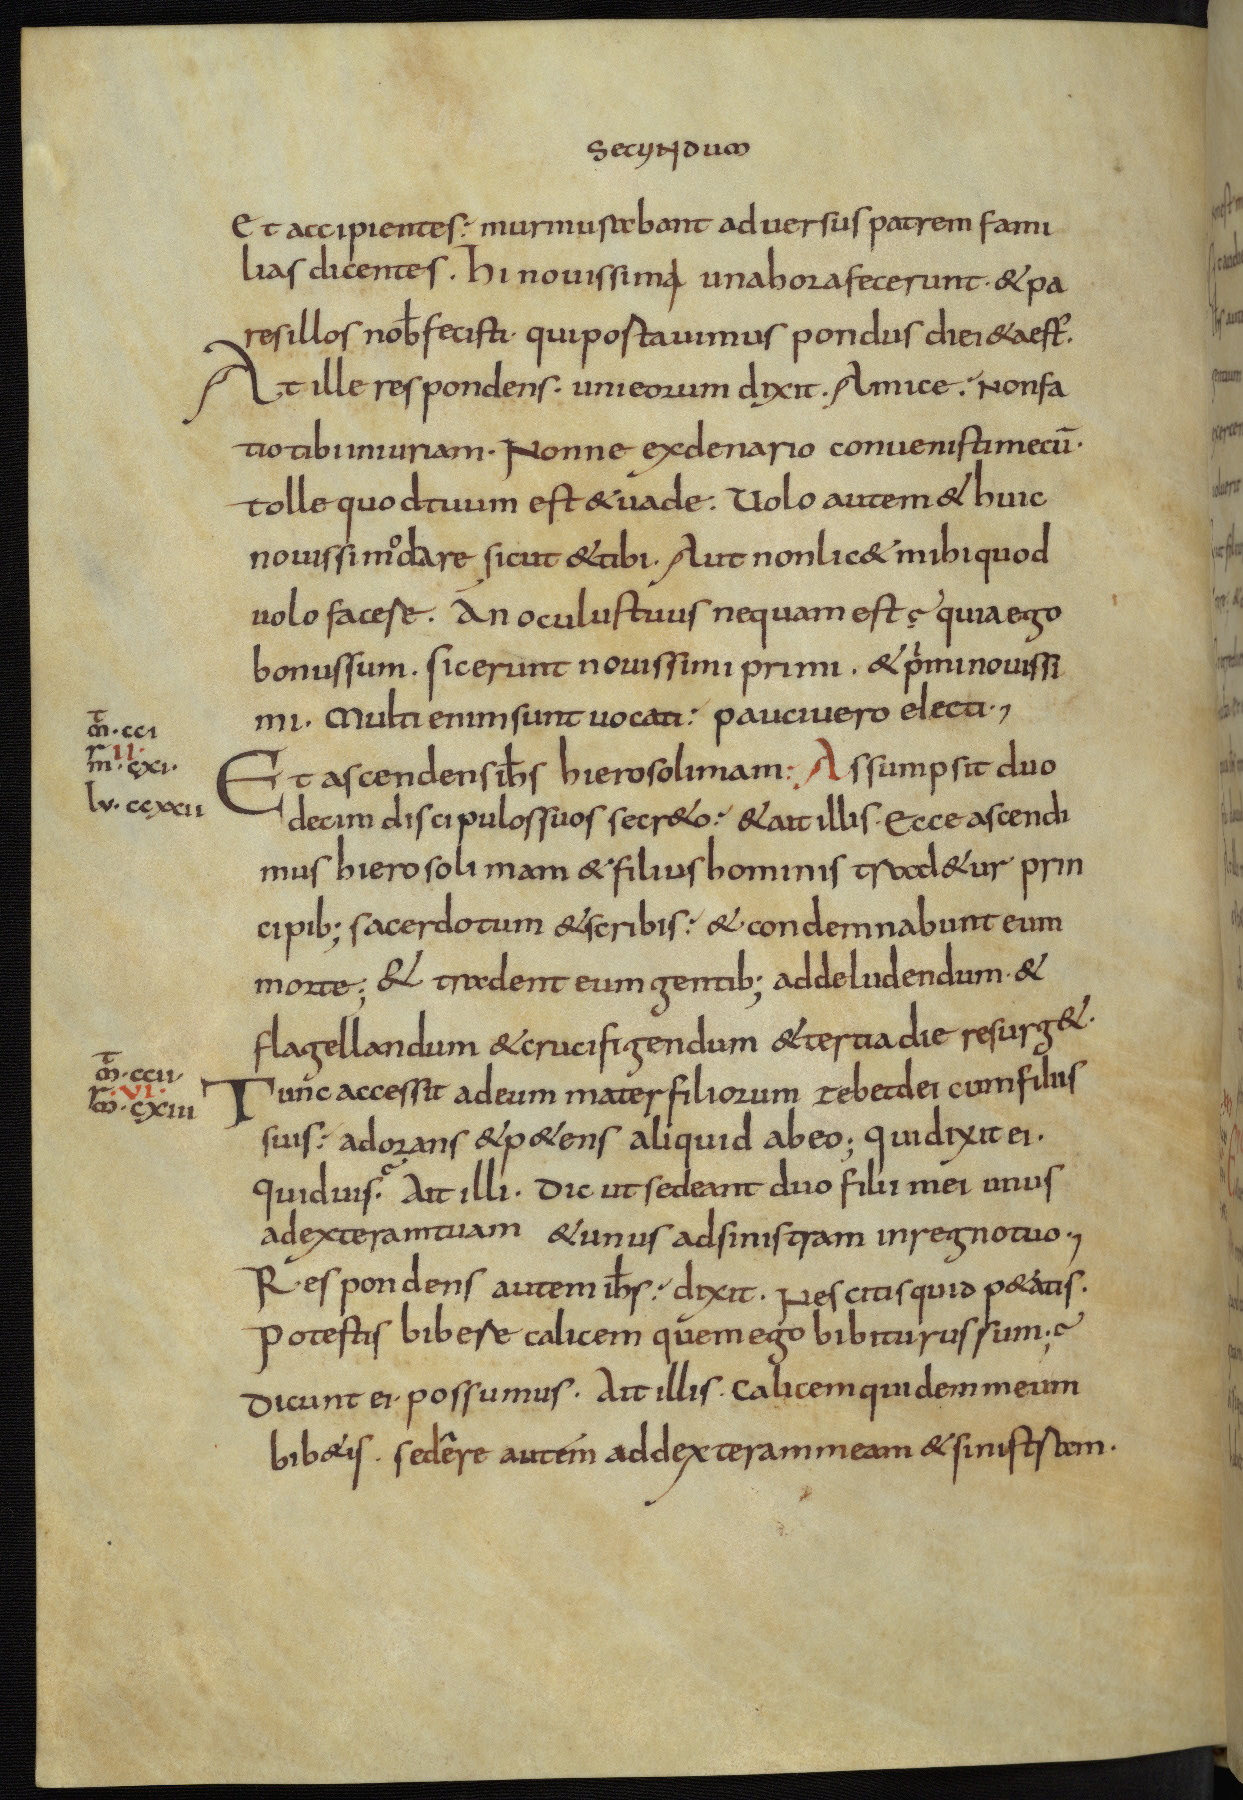 SECUNDUM
Et accipientes: murmurabant aduersus patrem fami
lias dicentes. hi nouissimi una hora fecerunt. & pa
res illos nob̄ fecisti. qui portauimus pondus diei & aest̄.
At ille respondens. uni eorum dixit. Amice. Non fa
tio tibi iniuriam. Nonne ex denario conuenisti mecū.
tolle quod tuum est & uade: Uolo autem & huic
nouissimo dare sicut & tibi. Aut non lic& mihi quod
uolo facere. An oculus tuus nequam est? quia ego
bonus sum. sic erunt nouissimi primi. & primi nouissi
mi. Multi enim sunt uocati: pauci uero electi.,
m̄t. cci
II.
mr. cxi.
lu. ccxxii
Et ascendens ih̄s hierosolimam: Assumpsit duo
decim discipulos suos secr&o: & ait illis. Ecce ascendi
mus hierosolimam & filius hominis trad&ur prin
cipib; sacerdotum & scribis: & condemnabunt eum
morte; & tradent eum gentib; ad deludendum. &
flagellandum & crucifigendum & tertia die resurg&.
m̄t. ccii.
VI.
mr. cxiii
Tunc accessit ad eum mater filiorum zebetdei cum filiis
suis: adorans & p&ens aliquid ab eo; qui dixit ei.
quid uis? Ait illi. Dic ut sedeant duo filii mei unus
ad exteram tuam & unus ad sinistram in regno tuo.,
Respondens autem ih̄s: dixit. Nescitis quid p&atis.
Potestis bibere calicem quem ego bibiturus sum?
Dicunt ei. possumus. Ait illis. Calicem quidem meum
bib&is. sedere autem ad dexteram meam & sinistram.